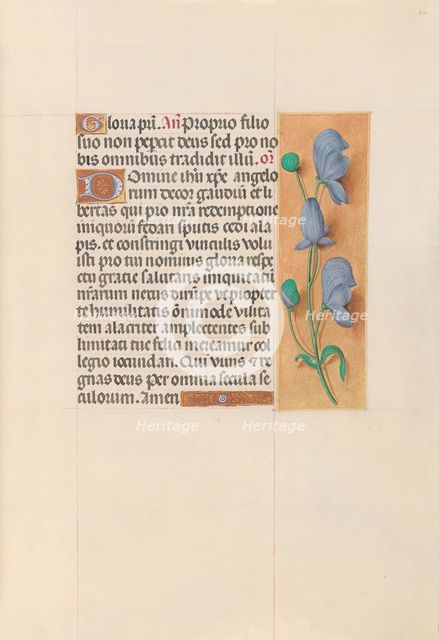 Gloria pri. Añ Proprio filio
suo non pepcit deus sed pro no
bis omnibus tradidit illũ. or
Domine ihũ xpe angelo
rum decor gaudiũ et li
bertas qui pro nr̃a redemptione
iniquoiũ fedari sputis cedi ala
pis. et constringi vinculis volu
isti pro tui nominis gloria respe
ctu gratie salutaris iniquitatũ
nr̃arum
te humilitatis om̃imode vilita
tem alacriter amplectentes sub
limitati tue felici mereamur col
legio iocundari. Qui viuis et re
gnas deus per omnia secula se
culorum. Amen
Heritage
Heritage
Heritage
Heritage
Heritage